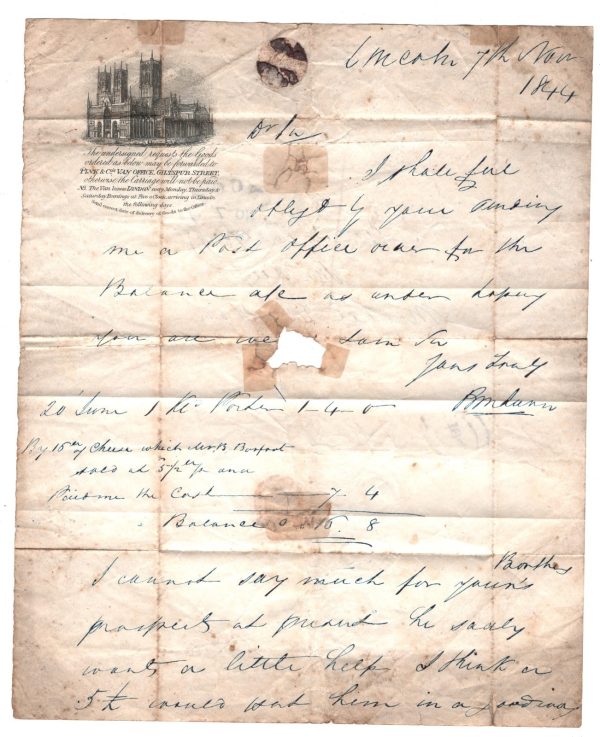 Lincoln 7th Nov
1844
The undersigned requests the Goods
ordered as below may be forwarded to
& Co's VAN OFFICE, GILTSPUR STREET,
otherwise the Carriage will not be paid.
NB. The Van leaves LONDON every Monday, Thursday &
Saturday Evenings at Five o'Clock, arriving in Lincoln
the following days
Dr Sir
I shall feel
oblgd by your sending
me a Post Office order for the
Balance a/c as under hoping
you are well I am Sir
Yours Truly
20 June 1 Porter 1-4-0
By 16 of Cheese which Mr B
sold at 5½ and
Paid me the Cash 7. 4
Balance 16. 8
I cannot say much for your
prospect at present he sadly
wants a little help I think a
5£ would put him in a good way